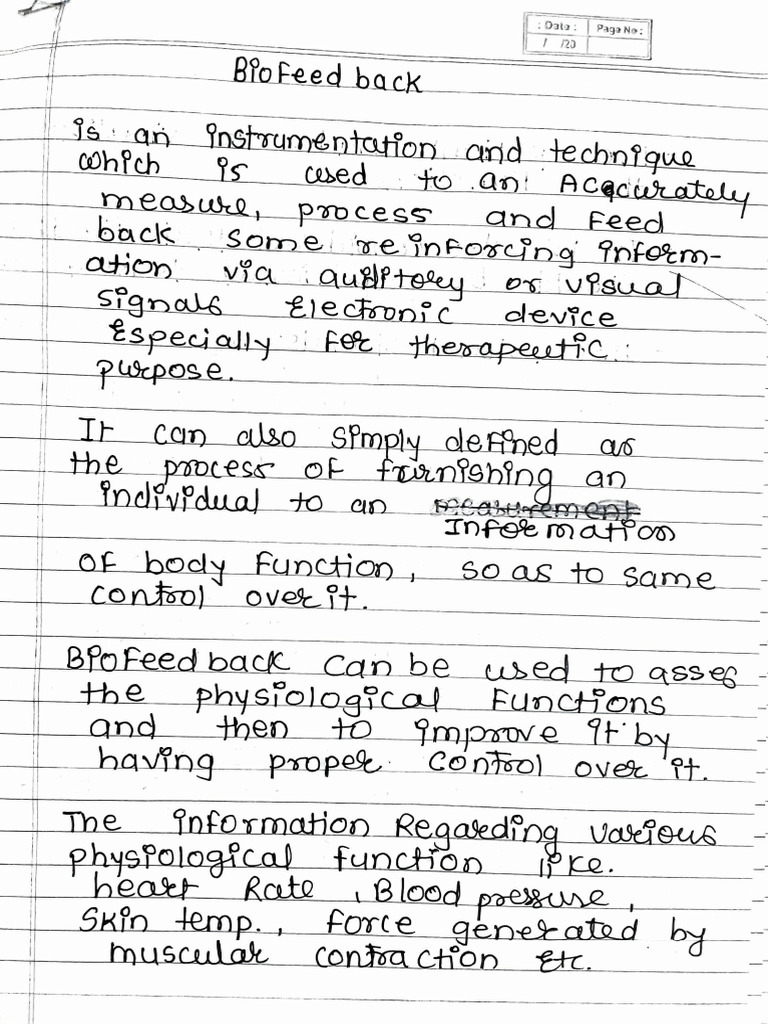 : Date :
Page No :
/ /20
BioFeed back
is an instrumentation and technique
which is used to an Acccurately
measure, process and Feed
back some reinforcing inform-
ation via auditory or visual
signals Electronic device
Especially for therapeutic
purpose.
It can also simply defined as
the process of furnishing an
individual to an measurement
Information
of body function, so as to same
control over it.
BioFeed back can be used to asses
the physiological Functions
and then to improve it by
having proper control over it.
The information Regarding various
physiological function like.
heart Rate, Blood pressure,
Skin temp., force generated by
muscular contraction Etc.